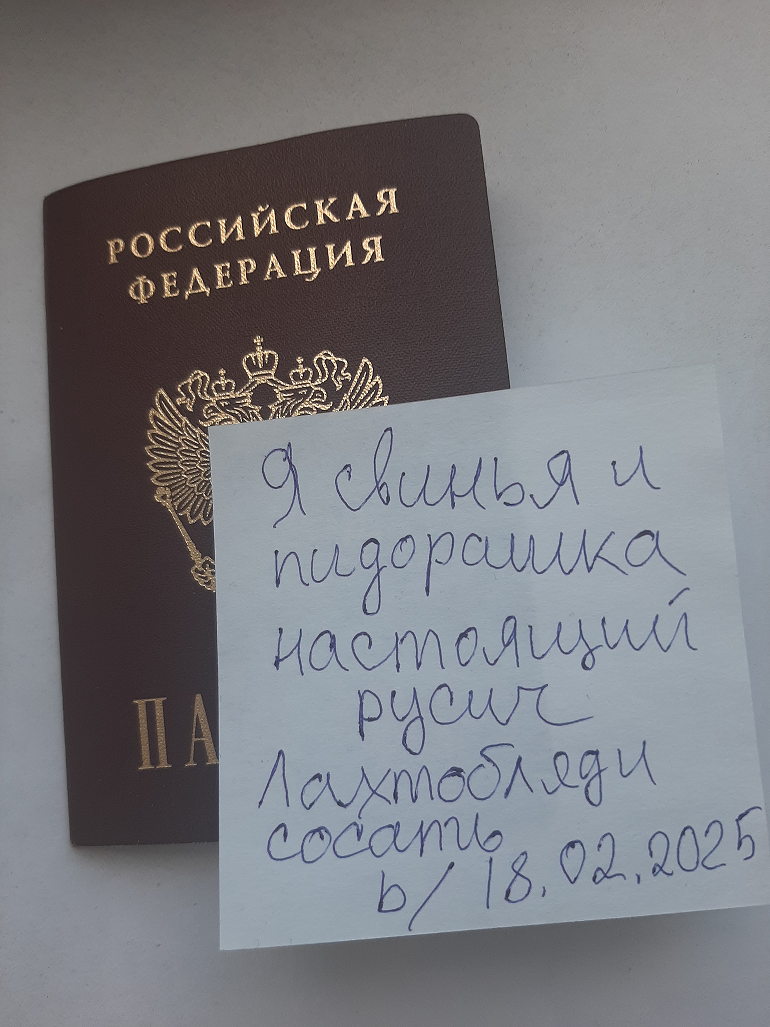 РОССИЙСКАЯ
ФЕДЕРАЦИЯ
ПА
Я свинья и
пидорашка
настоящий
русич
Лахтобляди
сосать
b/ 18.02.2025